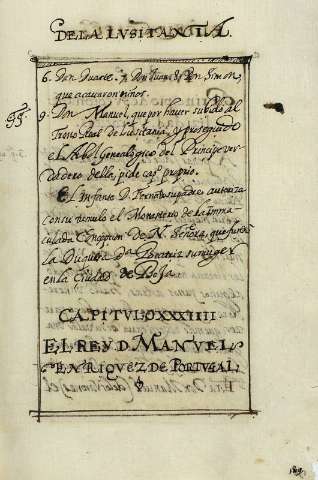 DE LA LVSITANIA.
6. Don Duarte. 7. Don Juan. 8. Don Simon,
que acavaron niños.
9. Don Manuel, que por haver subido al
Trono Real de Lusitania, y proseguido
el Arbol Genealogico del Principe ver
dadero della, pide cap.º proprio.
El Infante D. Fernando su padre autoriza
con su titulo el Monasterio de la Inma
culada Concepcion de N. Señora, que fundó
la Duquesa D.ª Beatriz su muger
en la Ciudad de Beja.
CAPITVLO XXXIIII
EL REY D. MANVEL
ENRIQVEZ DE PORTVGAL,